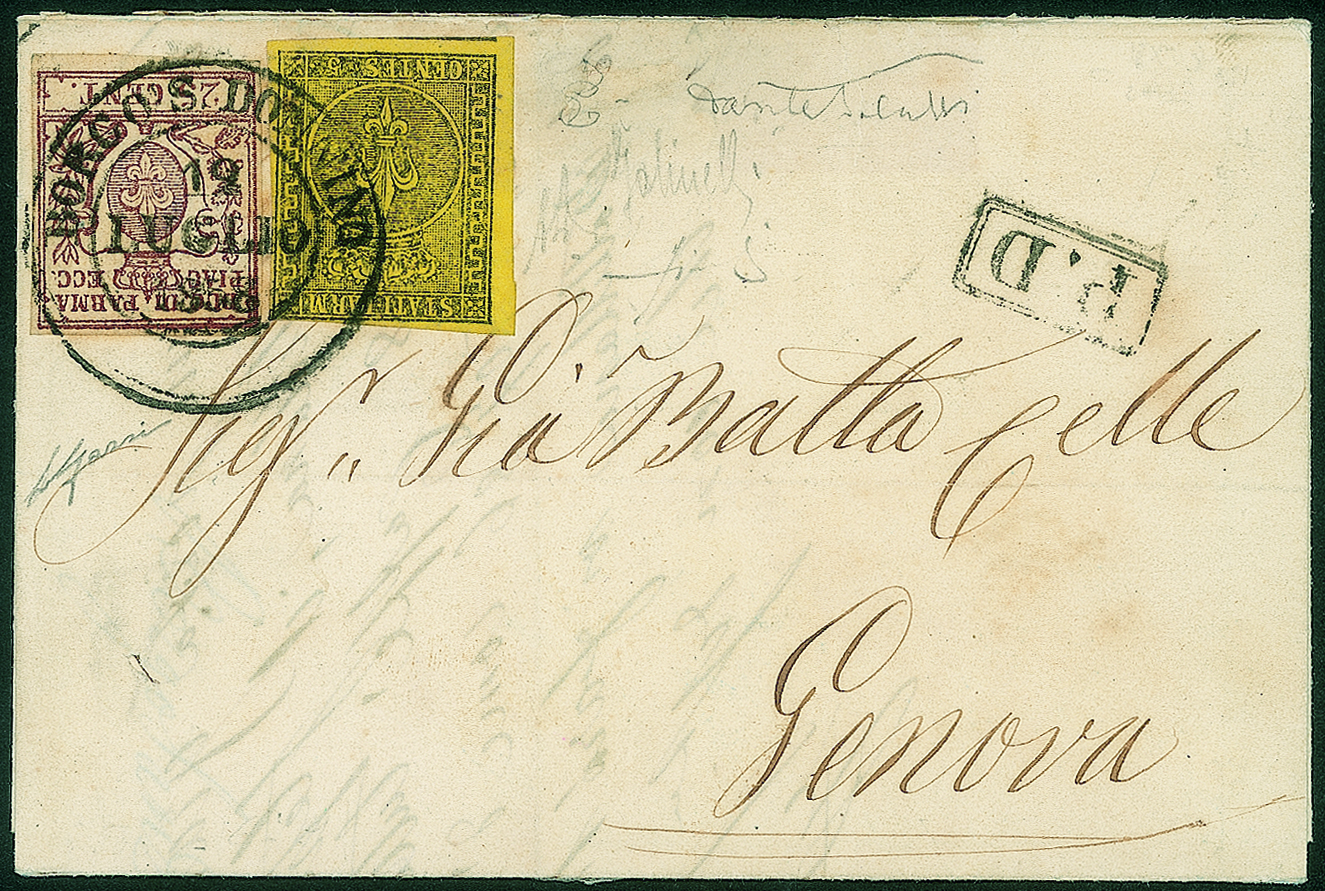 25 CENT.
DUC. DI PARMA
PIAC. ECC.
CENTES. 5
STATI PARM
BORGO S. DONNINO
19
LUGLIO
P. D
Sigr Gio Batta Celle
Genova